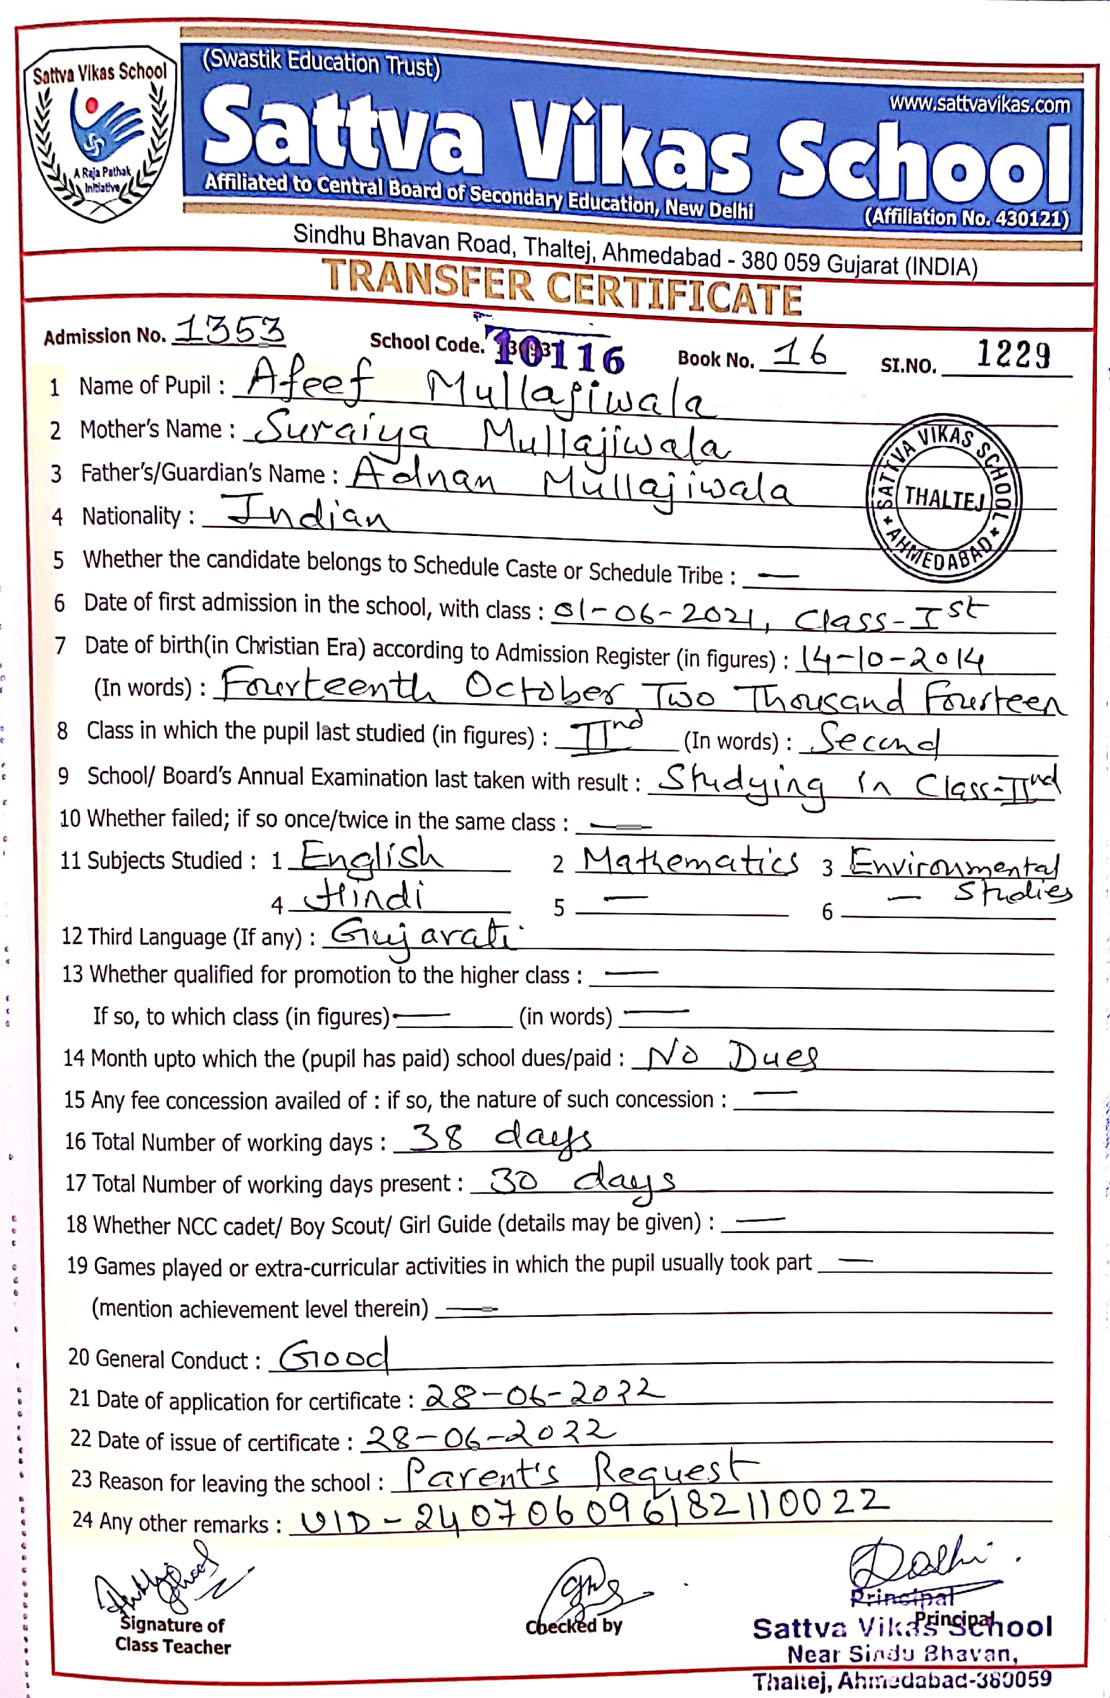 Sattva Vikas School
A Raja Pathak
Initiative
(Swastik Education Trust)
www.sattvavikas.com
Sattva Vikas School
Affiliated to Central Board of Secondary Education, New Delhi
(Affiliation No. 430121)
Sindhu Bhavan Road, Thaltej, Ahmedabad - 380 059 Gujarat (INDIA)
TRANSFER CERTIFICATE
Admission No. 1353 School Code. 10116 Book No. 16 SI.NO. 1229
1 Name of Pupil : Afeef Mullajiwala
2 Mother's Name : Suraiya Mullajiwala
3 Father's/Guardian's Name : Adnan Mullajiwala
4 Nationality : Indian
SATTVA VIKAS SCHOOL
THALTEJ
* AHMEDABAD *
5 Whether the candidate belongs to Schedule Caste or Schedule Tribe : —
6 Date of first admission in the school, with class : 01-06-2021, Class-Ist
7 Date of birth(in Christian Era) according to Admission Register (in figures) : 14-10-2014
(In words) : Fourteenth October Two Thousand Fourteen
8 Class in which the pupil last studied (in figures) : IInd (In words) : Second
9 School/ Board's Annual Examination last taken with result : Studying in Class-IInd
10 Whether failed; if so once/twice in the same class : —
11 Subjects Studied : 1 English 2 Mathematics 3 Environmental
Studies
4 Hindi 5 — 6 —
12 Third Language (If any) : Gujarati
13 Whether qualified for promotion to the higher class : —
If so, to which class (in figures) — (in words) —
14 Month upto which the (pupil has paid) school dues/paid : No Dues
15 Any fee concession availed of : if so, the nature of such concession : —
16 Total Number of working days : 38 days
17 Total Number of working days present : 30 days
18 Whether NCC cadet/ Boy Scout/ Girl Guide (details may be given) : —
19 Games played or extra-curricular activities in which the pupil usually took part —
(mention achievement level therein) —
20 General Conduct : Good
21 Date of application for certificate : 28-06-2022
22 Date of issue of certificate : 28-06-2022
23 Reason for leaving the school : Parent's Request
24 Any other remarks : UID-240706096182110022
Signature of
Class Teacher
Checked by
Principal
Principal
Sattva Vikas School
Near Sindu Bhavan,
Thaltej, Ahmedabad-380059